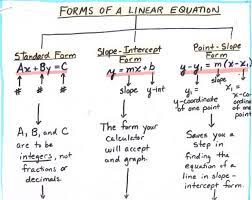 FORMS OF A LINEAR EQUATION
Standard Form
Ax + By = C
# # #
A, B, and C
are to be
integers, not
fractions or
decimals.
Slope-Intercept
Form
y = mx + b
slope y-int
The form your
calculator
will accept
and graph.
Point-Slope
Form
y-y₁ = m(x-x₁)
slope
y₁ =
y-coordinate
of one point
x₁ =
of one
Saves you a
step in
finding the
equation of a
line in slope-
intercept form.